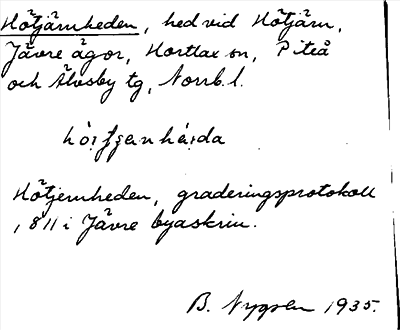 Hötjärnheden, hed vid Hötjärn,
Jävre ägor, Hortlax sn, Piteå
och Älvsby tg, Norrb. l.
Hötjernheden, graderingsprotokoll
1811 i Jävre byaskrin.
B. Nygren 1935.